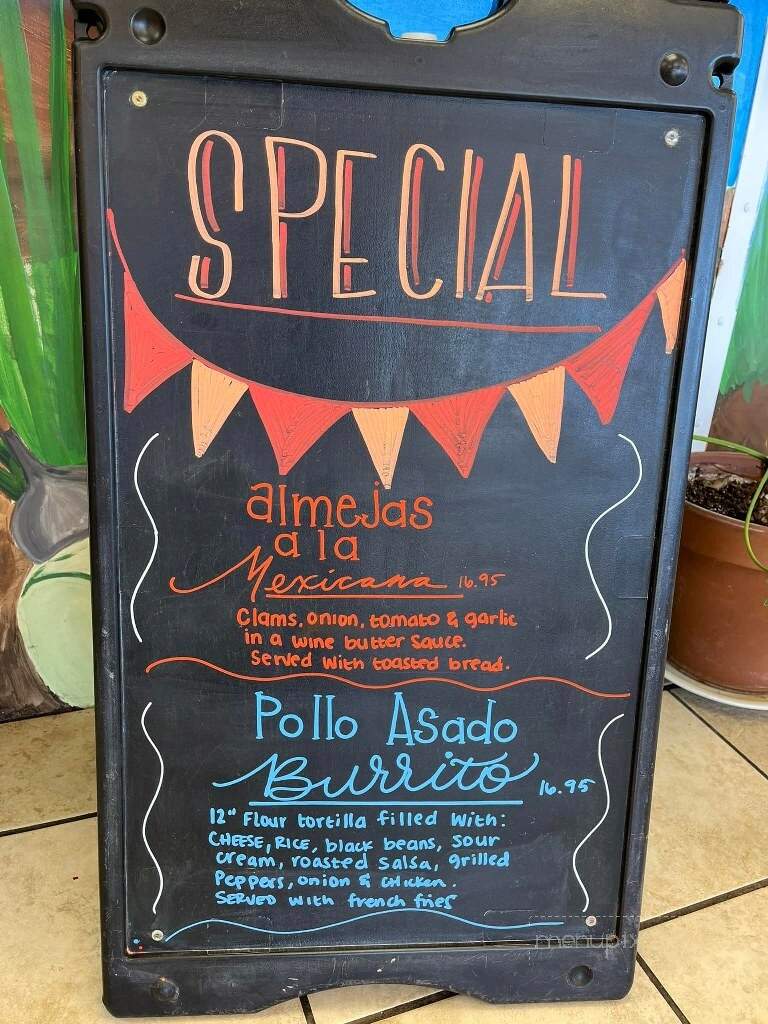 SPECIAL
almejas
a la
Mexicana 16.95
Clams, onion, tomato & garlic
in a wine butter sauce.
Served with toasted bread.
Pollo Asado
Burrito 16.95
12" Flour tortilla filled with:
CHEESE, RICE, black beans, sour
cream, roasted salsa, grilled
Peppers, onion & chicken.
SERVED with french fries
menupix